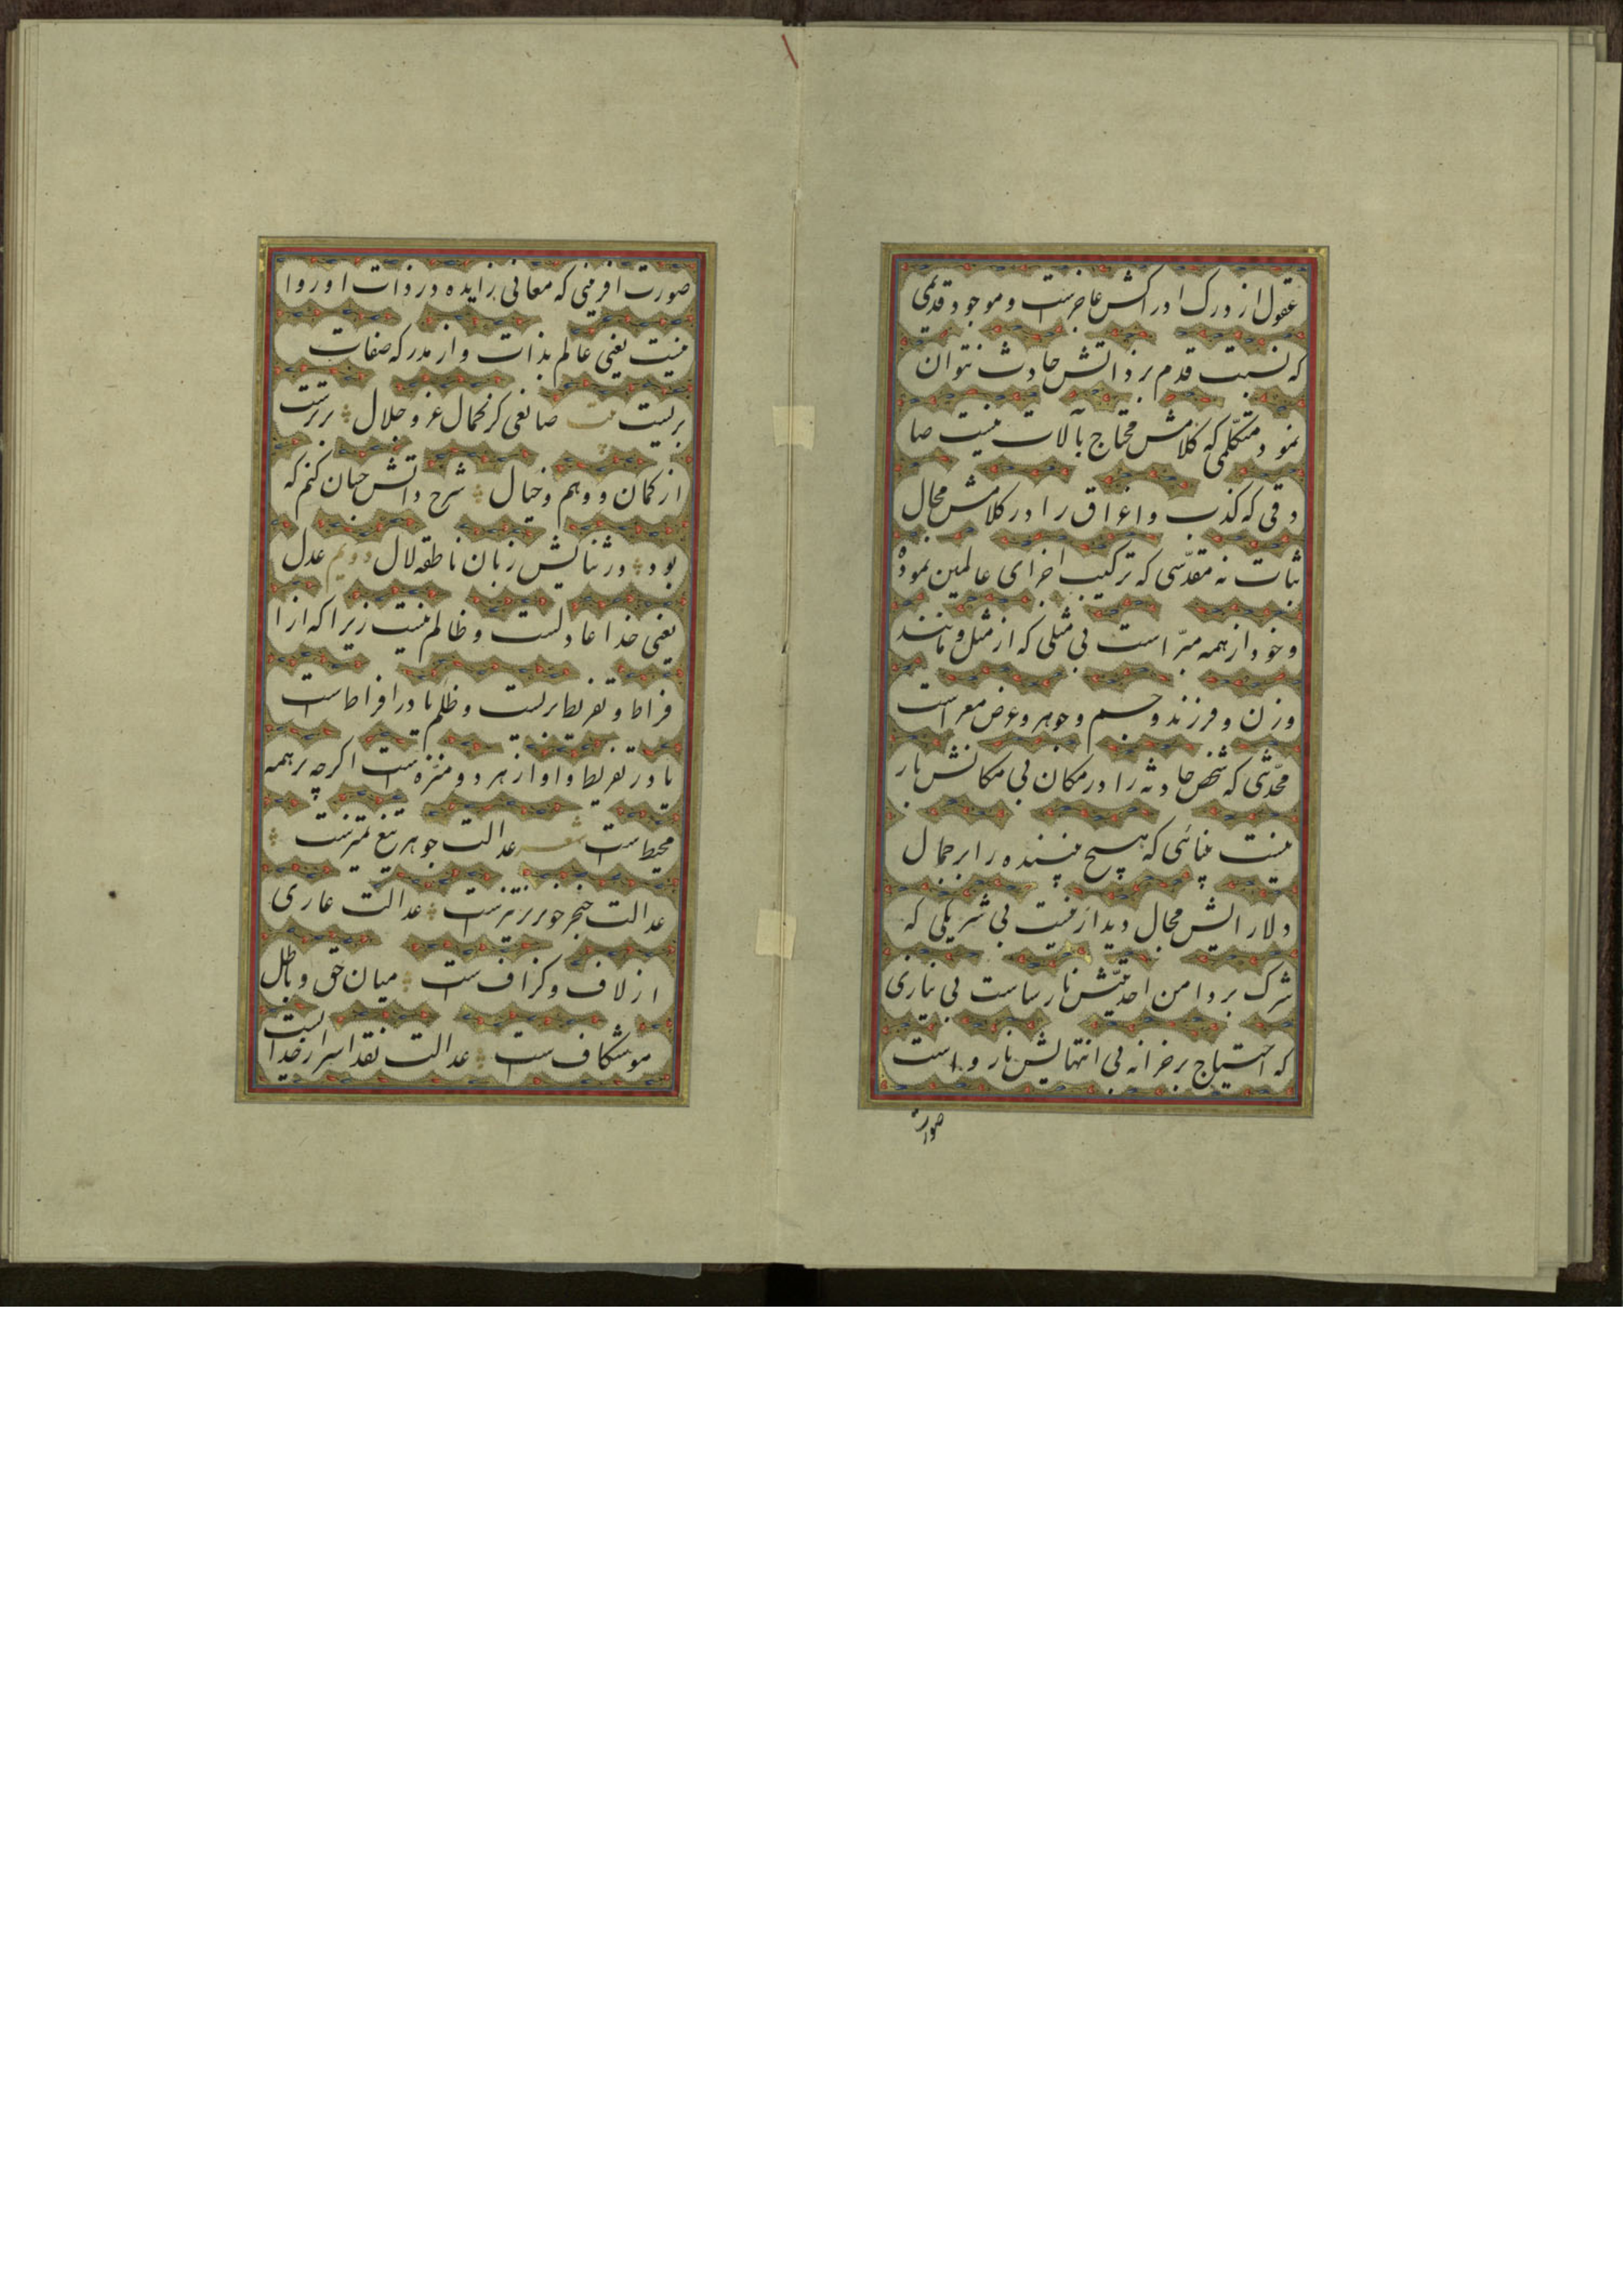 عقول از درک ادراکش عاجزست و موجود قدیمی
که نسبت قدم بر ذاتش حادث نتوان
نمود متکلمی که کلامش محتاج بآلات نیست صا
دقی که کذب و اغراق را در کلامش مجال
ثبات نه مقدّسی که ترکیب اجزای عالمین نموده
و خود از همه مبرّاست بی مثلی که از مثل و مانند
و زن و فرزند و جسم و جوهر و عرض معراست
محدّثی که شخص حادثه را در مکان بی مکانش بار
نیست بینائی که هیچ بیننده را بر جمال
دلارایش مجال دیدار نیست بی شریکی که
شرک بر دامن احدیّتش نارساست بی نیازی
که احتیاج بر خزانه بی انتهایش نارواست
صورت
صورت افرینی که معانی زایده در ذات او روا
نیست یعنی عالم بذات و از مدرکه صفات
بریست بیت صانعی کز کمال عز و جلال برترست
از کمان و وهم و خیال شرح ذاتش جسان کنم که
بود در ثنایش زبان ناطقه لال دویم عدل
یعنی خدا عادلست و ظالم نیست زیرا که از ا
فراط و تفریط بریست و ظلم یا در افراط است
یا در تفریط و او از هر دو منزّه است اکرچه بر همه
محیط است شعر عدالت جوهر تیغ تمیزست
عدالت خنجر خونریز تیزست عدالت عاری
از لاف و کزاف ست میان حق و باطل
موشکاف ست عدالت نقد اسرار خدایست